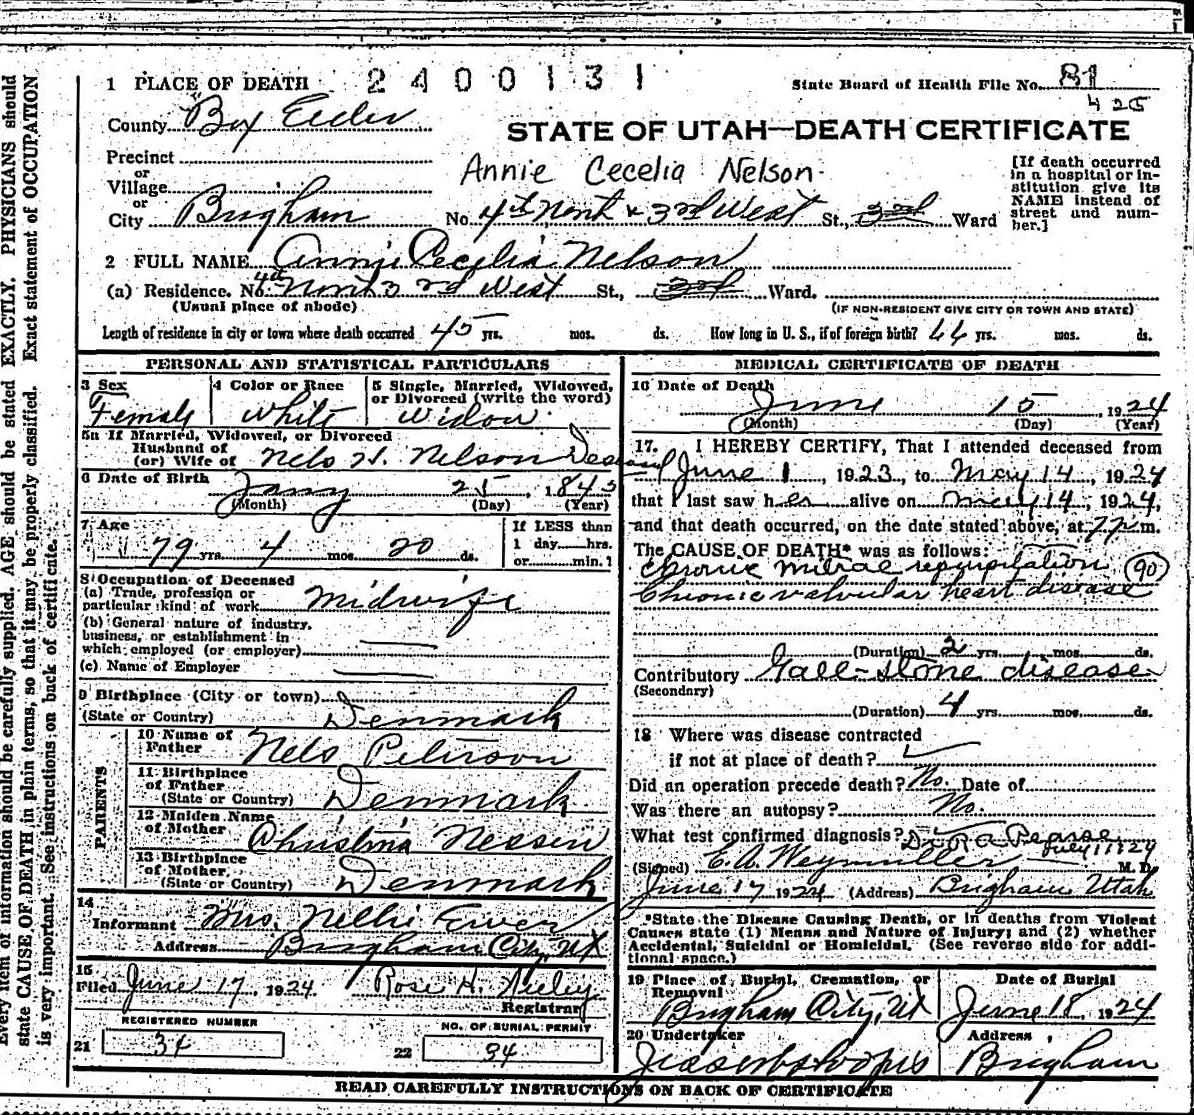 1 PLACE OF DEATH 2400131 State Board of Health File No. 81
425
County Box Elder
STATE OF UTAH—DEATH CERTIFICATE
Precinct
or
Village
or
City Brigham
Annie Cecelia Nelson
No. 4th North & 3rd West St., 3rd Ward
[If death occurred
in a hospital or in-
stitution give its
NAME instead of
street and num-
ber.]
2 FULL NAME Annie Cecelia Nelson
(a) Residence. No. 4th North 3rd West St., 3rd Ward.
(Usual place of abode) (IF NON-RESIDENT GIVE CITY OR TOWN AND STATE)
Length of residence in city or town where death occurred 45 yrs. mos. ds. How long in U. S., if of foreign birth? 66 yrs. mos. ds.
PERSONAL AND STATISTICAL PARTICULARS
3 Sex
Female
4 Color or Race
White
5 Single, Married, Widowed,
or Divorced (write the word)
Widow
5a If Married, Widowed, or Divorced
Husband of
(or) Wife of Nels H. Nelson Deceased
6 Date of Birth Jany 25, 1845
(Month) (Day) (Year)
7 Age
79 yrs. 4 mos. 20 ds.
If LESS than
1 day hrs.
or min.?
8 Occupation of Deceased
(a) Trade, profession or
particular kind of work Midwife
(b) General nature of industry,
business, or establishment in
which employed (or employer)
(c) Name of Employer
9 Birthplace (City or town)
(State or Country) Denmark
PARENTS
10 Name of
Father Nels Peterson
11 Birthplace
of Father
(State or Country) Denmark
12 Maiden Name
of Mother Christina Nessen
13 Birthplace
of Mother
(State or Country) Denmark
14
Informant Mrs. Nellie Ewer
Address Brigham City, Ut
15
Filed June 17, 1924. Rose H.
Registrar
REGISTERED NUMBER
21 34
NO. OF BURIAL PERMIT
22 34
MEDICAL CERTIFICATE OF DEATH
16 Date of Death
June 15, 1924
(Month) (Day) (Year)
17. I HEREBY CERTIFY, That I attended deceased from
June 1, 1923, to May 14, 1924
that I last saw her alive on May 14, 1924,
and that death occurred, on the date stated above, at 7 P m.
The CAUSE OF DEATH* was as follows:
Chronic mitral regurgitation 90
Chronic valvular heart disease
(Duration) 2 yrs. mos. ds.
Contributory Gall-stone disease
(Secondary)
(Duration) 4 yrs. mos. ds.
18 Where was disease contracted
if not at place of death?
Did an operation precede death? No. Date of
Was there an autopsy? No.
What test confirmed diagnosis? Dr. R. A. Pearse
July 11 1924
(Signed) E. A. Weymuller M. D.
June 17 1924 (Address) Brigham Utah
*State the Disease Causing Death, or in deaths from Violent
Causes state (1) Means and Nature of Injury; and (2) whether
Accidental, Suicidal or Homicidal. (See reverse side for addi-
tional space.)
19 Place of Burial, Cremation, or
Removal
Brigham City, Ut
Date of Burial
June 18, 1924
20 Undertaker
Address
Brigham
READ CAREFULLY INSTRUCTIONS ON BACK OF CERTIFICATE
Every item of information should be carefully supplied. AGE should be stated EXACTLY. PHYSICIANS should
state CAUSE OF DEATH in plain terms, so that it may be properly classified. Exact statement of OCCUPATION
is very important. See instructions on back of certificate.